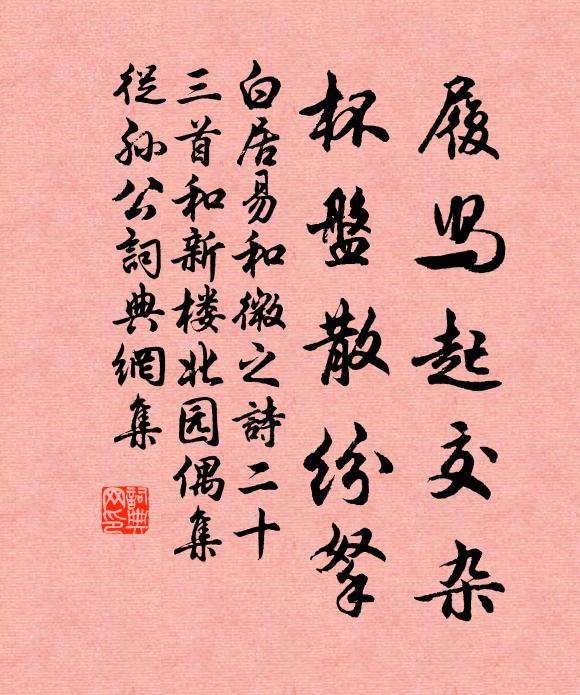 履舄起交杂
杯盤散纷拏
白居易和微之詩二十
三首和新楼北园偶集
從孙公詞典網集
詞典网印